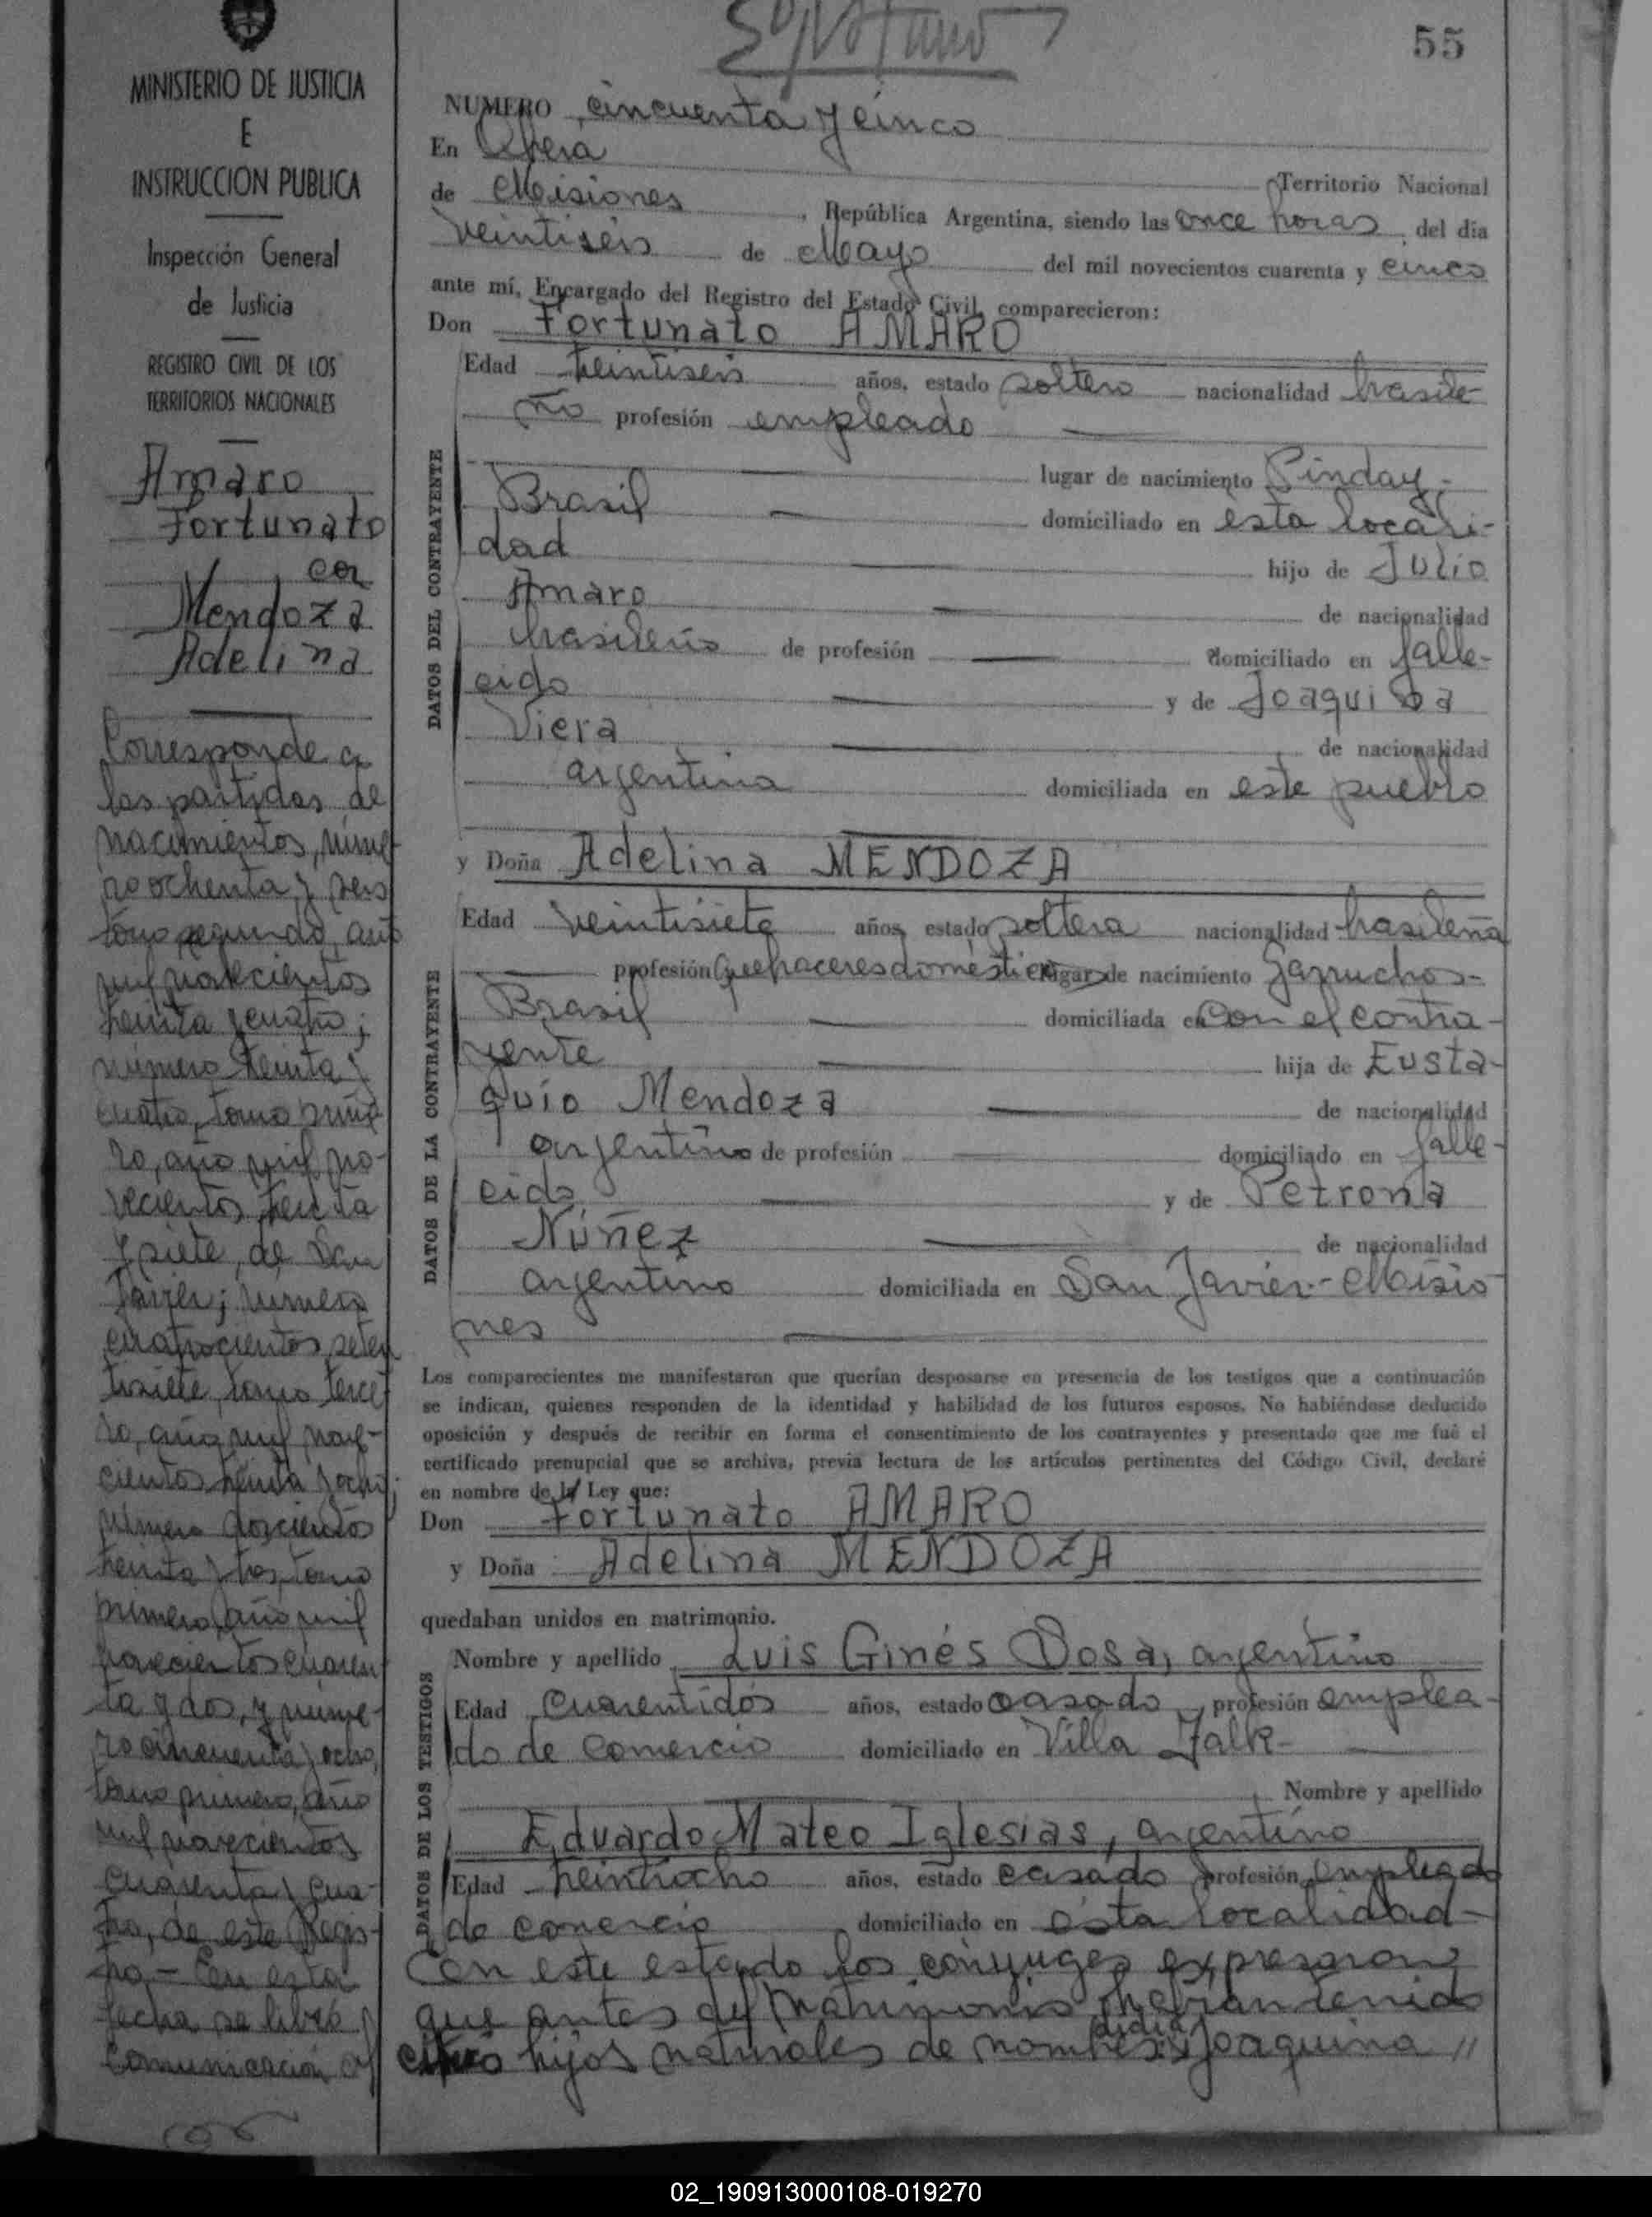 55
MINISTERIO DE JUSTICIA
E
INSTRUCCION PUBLICA
Inspección General
de Justicia
REGISTRO CIVIL DE LOS
TERRITORIOS NACIONALES
Amaro
Fortunato
con
Mendoza
Adelina
Corresponde a
las partidas de
nacimientos, núme-
ro ochenta y seis
tomo segundo, año
mil novecientos
treinta y cuatro;
número treinta y
cuatro, tomo prime-
ro, año mil no-
vecientos treinta
y siete, de San
Javier; número
cuatrocientos seten
tisiete, tomo terce-
ro, año mil nove-
cientos treinta y ocho;
número doscientos
treinta y tres, tomo
primero, año mil
novecientos cuaren
ta y dos, y núme-
ro cincuenta y ocho,
tomo primero, año
mil novecientos
cuarenta y cua-
tro, de este Regis-
tro.- En esta
fecha se libró
comunicación al
NUMERO cincuenta y cinco
En Obera
Territorio Nacional
de Misiones, República Argentina, siendo las once horas del día
veintiseis de Mayo del mil novecientos cuarenta y cinco
ante mí, Encargado del Registro del Estado Civil, comparecieron:
Don Fortunato AMARO
DATOS DEL CONTRAYENTE
Edad treintiseis años, estado soltero nacionalidad brasile-
ño profesión empleado
lugar de nacimiento Pinday,
Brasil domiciliado en esta locali-
dad hijo de Julio
Amaro de nacionalidad
brasileño de profesión domiciliado en falle-
cido y de Joaquina
Viera de nacionalidad
argentina domiciliada en este pueblo
y Doña Adelina MENDOZA
DATOS DE LA CONTRAYENTE
Edad veintisiete años, estado soltera nacionalidad brasileña
profesión Quehaceres domésticos lugar de nacimiento Garruchos-
Brasil domiciliada en con el contra-
yente hija de Eusta-
quio Mendoza de nacionalidad
argentino de profesión domiciliado en falle-
cido y de Petrona
Núñez de nacionalidad
argentino domiciliada en San Javier-Misio
nes
Los comparecientes me manifestaron que querían desposarse en presencia de los testigos que a continuación
se indican, quienes responden de la identidad y habilidad de los futuros esposos. No habiéndose deducido
oposición y después de recibir en forma el consentimiento de los contrayentes y presentado que me fué el
certificado prenupcial que se archiva, previa lectura de los artículos pertinentes del Código Civil, declaré
en nombre de la Ley que:
Don Fortunato AMARO
y Doña Adelina MENDOZA
quedaban unidos en matrimonio.
DATOS DE LOS TESTIGOS
Nombre y apellido Luis Ginés Sosa, argentino
Edad cuarentidós años, estado casado, profesión emplea-
do de comercio domiciliado en Villa Falk-
Nombre y apellido
Eduardo Mateo Iglesias, argentino
Edad treintiocho años, estado casado profesión empleado
de comercio domiciliado en ésta localidad-
En este estado los cónyuges expresaron
que antes del matrimonio habían tenido
cinco hijos naturales de nombres: Joaquina //
02_190913000108-019270